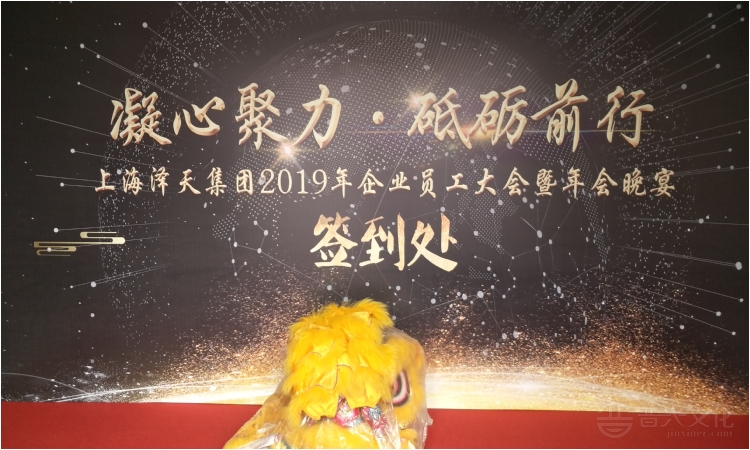 凝心聚力·砥砺前行
上海泽天集团2019年企业员工大会暨年会晚宴
签到处
晋人文化
jinxiner.com